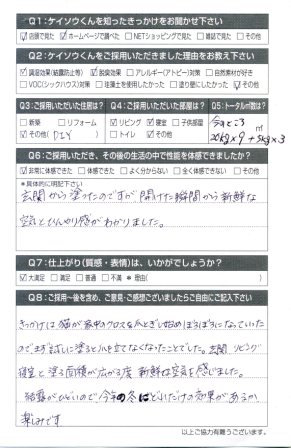 Q1：ケイソウくんを知ったきっかけをお聞かせ下さい
☑店頭で見た ☑ホームページで調べた □NETショッピングで見た □雑誌で見た □その他
Q2：ケイソウくんをご採用いただきました理由をお教え下さい
☑調湿効果(結露防止等) ☑脱臭効果 □アレルギー(アトピー)対策 □自然素材が好き
□VOC(シックハウス)対策 □珪藻土を使用したかった □塗り壁にしたかった ☑その他
Q3：ご採用いただいた住居は？
□新築 □リフォーム
☑その他(DIY)
Q4：ご採用いただいた部屋は？
☑リビング ☑寝室 □子供部屋
□トイレ ☑その他
Q5：トータル㎡数は？
今のところ ㎡
20kg×9+5kg×3
Q6：ご採用いただき、その後の生活の中で性能を体感できましたか？
☑非常に体感できた □体感できた □よく分からない □全く体感できない □その他
*具体的に明記下さい
玄関から塗ったのですが開けた瞬間から新鮮な
空気とひんやり感がわかりました。
Q7：仕上がり(質感・表情)は、いかがでしょうか？
☑大満足 □満足 □普通 □不満 * 理由( )
Q8：ご採用～後を含め、ご意見・ご感想ございましたらご自由にご記入下さい
きっかけは猫が家中のクロスを爪とぎし始めぼろぼろになっていた
のでまず試しに塗ると爪を立てなくなったことでした。玄関 リビング
寝室と塗る面積が広がる度 新鮮な空気を感じました。
結露がひどいので今年の冬にどれだけの効果があるか
楽しみです
以上ご協力有難うございます。